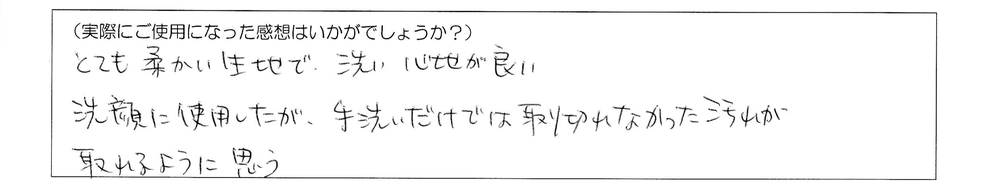 (実際にご使用になった感想はいかがでしょうか?)
とても柔かい生地で、洗い心地が良い
洗顔に使用したが、手洗いだけでは取り切れなかった汚れが
取れるように思う